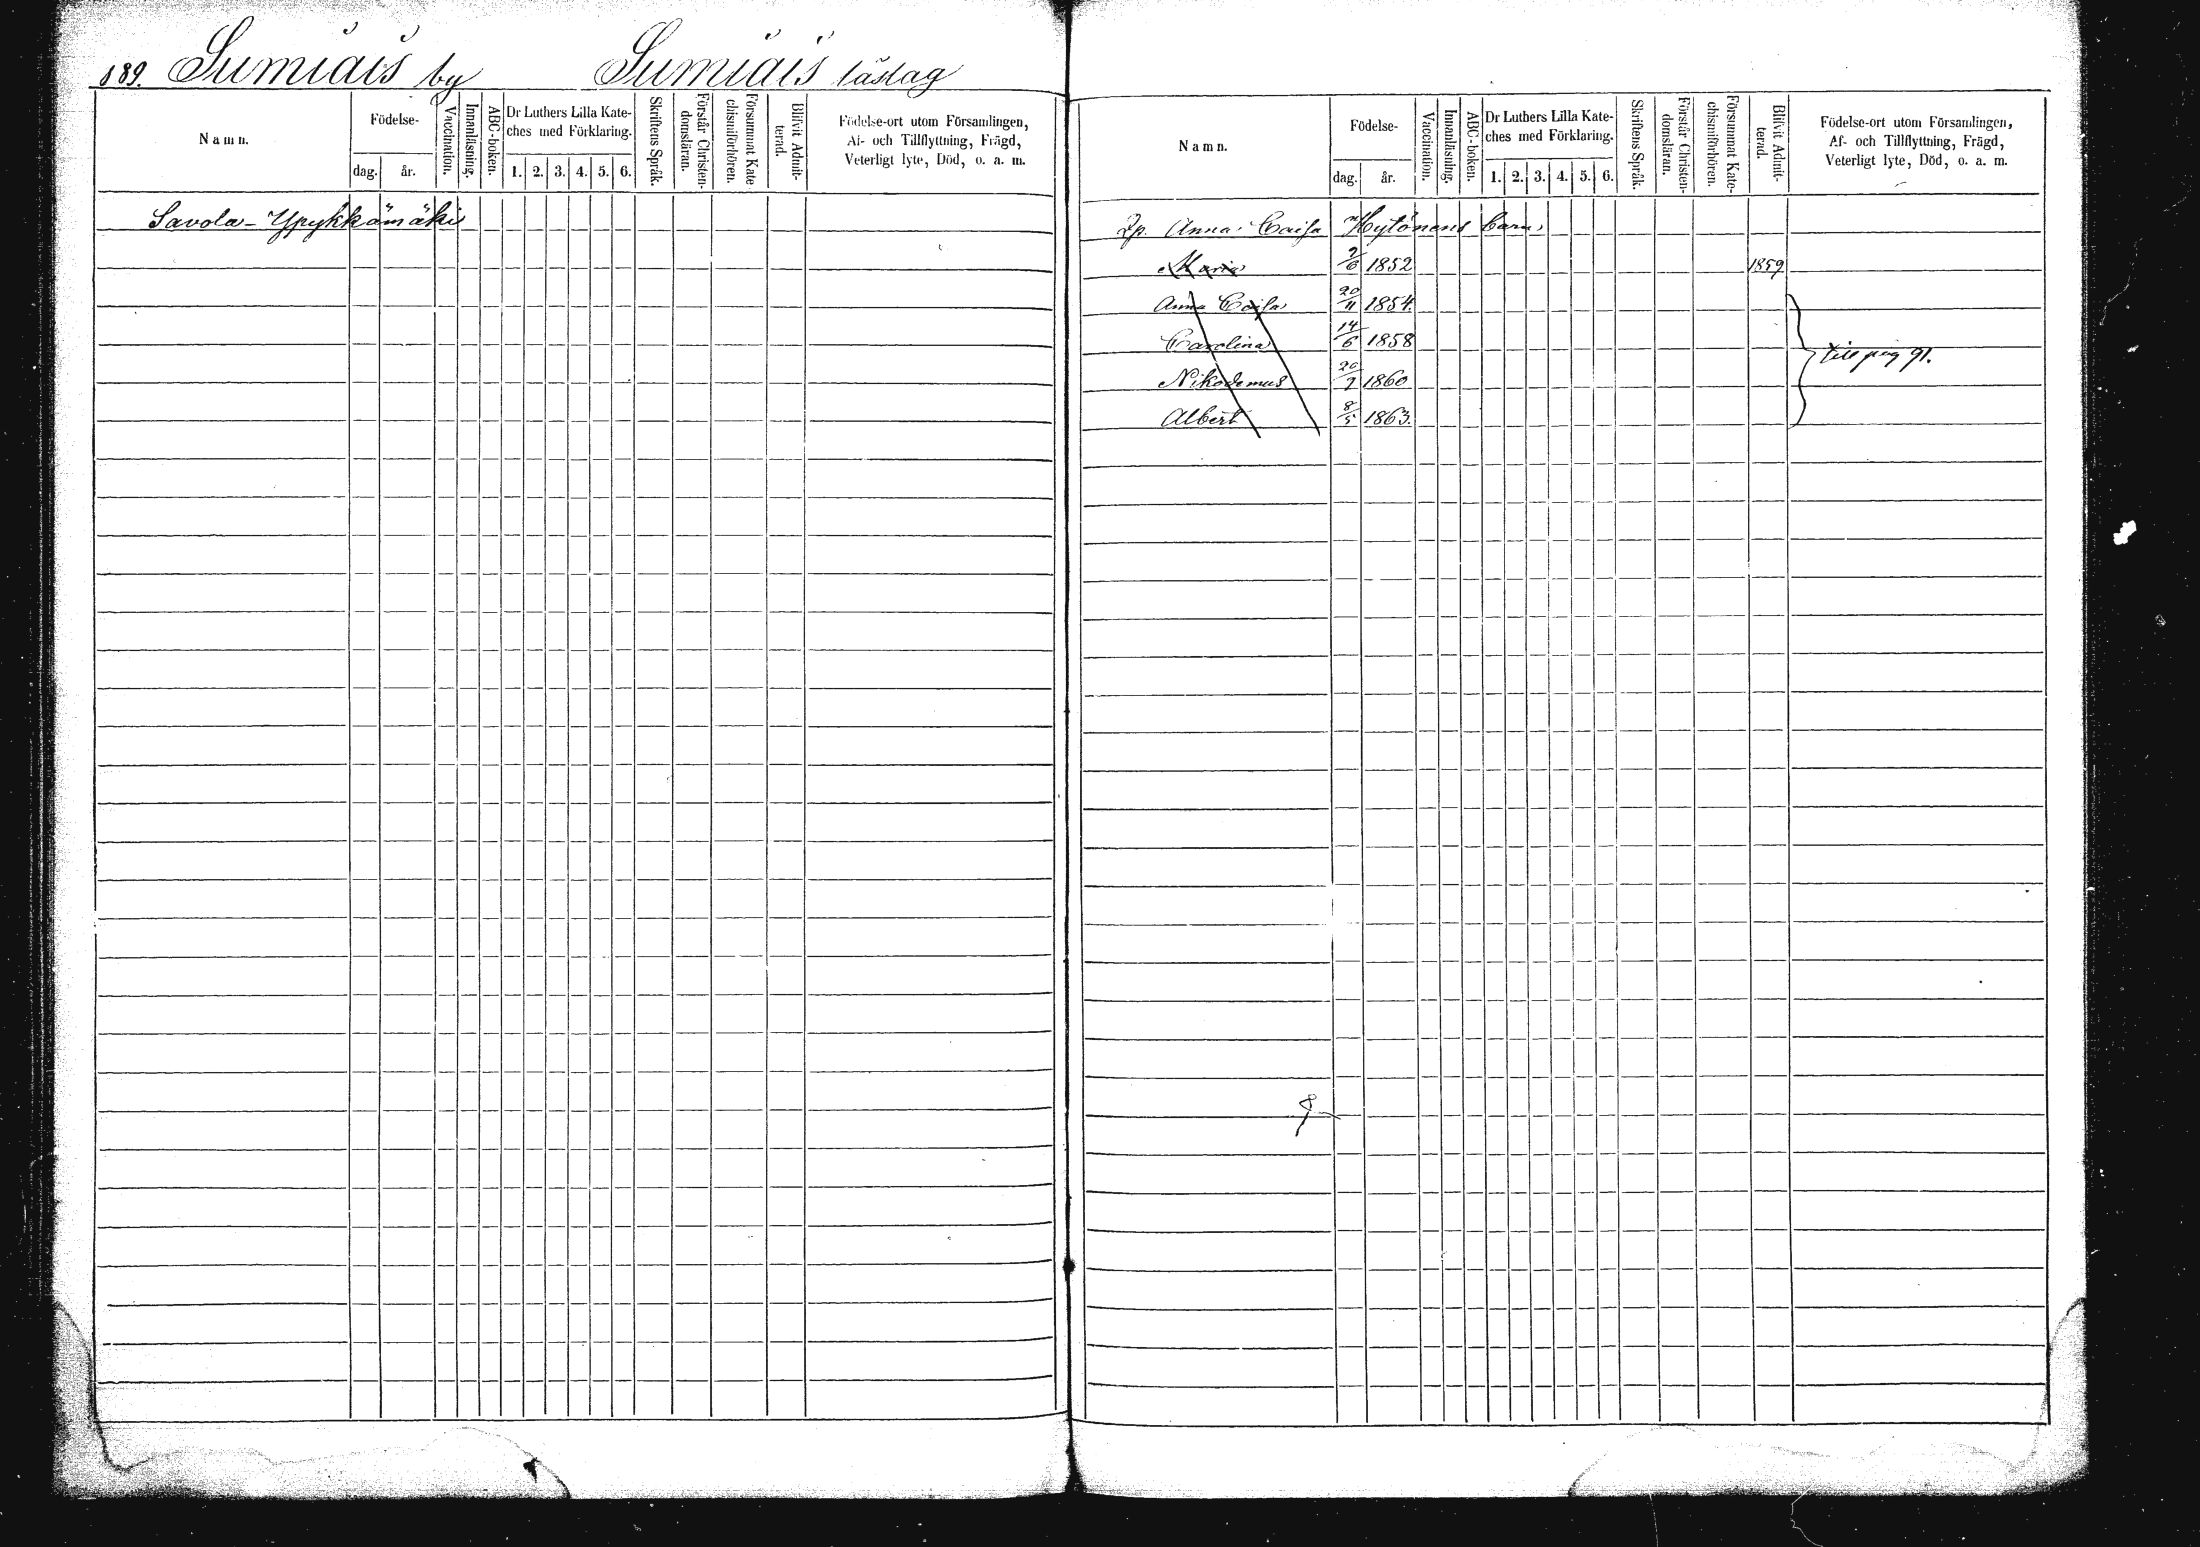 189. Sumiais by Sumiais läslag
Namn.
Födelse-
dag. år.
Vaccination.
Innanläsning.
ABC-boken.
Dr Luthers Lilla Kate-
ches med Förklaring.
1. 2. 3. 4. 5. 6.
Skriftens Språk.
Förstår Christen-
domsläran.
Försummat Kate
chismiförhören.
Blifvit Admit-
terad.
Födelse-ort utom Församlingen,
Af- och Tillflyttning, Frägd,
Veterligt lyte, Död, o. a. m.
Savola - Ypykkämäki
Namn.
Födelse-
dag. år.
Vaccination.
Innanläsning.
ABC-boken.
Dr Luthers Lilla Kate-
ches med Förklaring.
1. 2. 3. 4. 5. 6.
Skriftens Språk.
Förstår Christen-
domsläran.
Försummat Kate-
chismiförhören.
Blifvit Admit-
terad.
Födelse-ort utom Församlingen,
Af- och Tillflyttning, Frägd,
Veterligt lyte, Död, o. a. m.
Anna Caisa Hytönens barn
Maria 1852 1859
Anna Caisa 20/11 1854.
Carolina 14/6 1858
till pag 91.
Nikodemus 1860
Albert 8/5 1863.